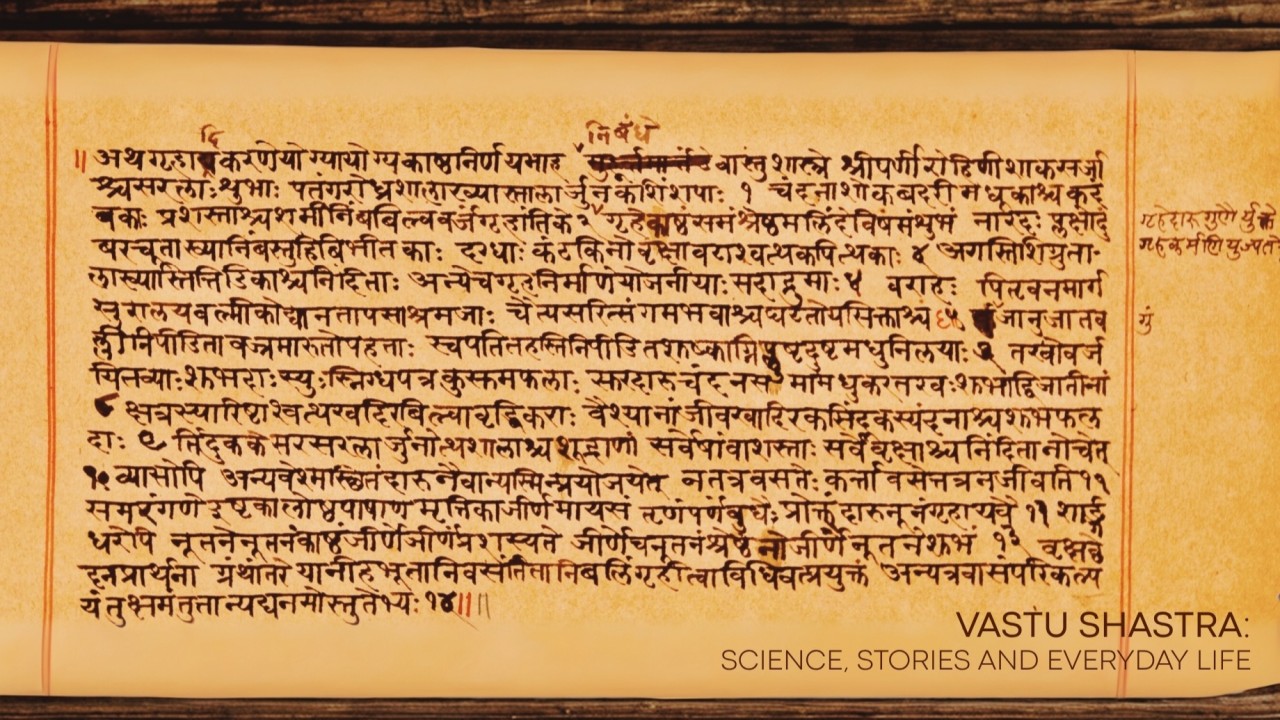 दि
निबंधे
॥ अथ गृहादिकरणेयोग्यायोग्यकाष्ठनिर्णयमाह वास्तुशास्त्रे श्रीपर्णीरोहिणीशाकसर्जा
श्चसरलाःशुभाः पतंगरोध्रशालाख्यास्तालार्जुनकशिंशपाः १ चंदनाशोकबदरीमधूकाश्चकदं
बकाः प्रशस्ताश्चशमीनिंबबिल्ववर्जगृहांतिके २ गृहेकाष्ठंसमंश्रेष्ठमलिंदेविषमंशुभं नारदः प्लक्षोदुं
बरचूताख्यानिंबस्तुहिबिभीतकाः दग्धाः कंटकिनोवृक्षावटाश्वत्थकपित्थकाः ४ अगस्तिशिग्रुता-
लाख्यास्तिंतिडिकाश्चनिंदिताः अन्येचगृहनिर्माणेयोजनीयाःमहाद्रुमाः ५ वराहः पितृवनमार्ग
सुरालयवल्मीकोद्यानतापसाश्रमजाः चैत्यसरित्संगमभवाश्चघटतोयसिक्ताश्च
गुं
तरवोवर्ज
यितव्याःशुभदाःस्युःस्निग्धपत्रकुसुमफलाः सुरदारुचंदनस मीमधुकतरवःशुभाद्विजातीनां
८ क्षत्रस्यारिष्टाश्वत्थखदिरबिल्वावृद्धिकराः वैश्यानांजीवखादिरकसिंदुकस्यंदनाश्चशुभफल
दाः ९ तिंदुककेसरसरलार्जुनोत्थशालाश्चशूद्राणां सर्वेषांवाशस्ताः सर्वेवृक्षाश्चनिंदितानोचेत्
१० व्यासोपि अन्यवेश्मास्थितंदारुनैवान्यस्मिन्प्रयोजयेत् नतत्रवसतेः कर्त्तावसेन्तत्रनजीवति ११
समरंगणे इष्टकालोष्ठपाषाणमृत्तिकाजीर्णमायसं तृणंपर्णंबुधैःप्रोक्तंदारुनूनंगृहाय वै ११ शार्ङ्ग
धरोपि नूतनेनूतनंकाष्ठंजीर्णेजीर्णंप्रशस्यते जीर्णेचनूतनंश्रेष्ठंनोजीर्णंनूतनेशुभं १२ वृक्षच्छे
दनप्रार्थना ग्रंथांतरे यानीहभूतानिवसंतितानिबलिंगृहीत्वाविधिवत्प्रयुक्तं अन्यत्रवासंपरिकल्प
यंतुक्षमंतुतान्यद्यनमोस्तुतेभ्यः १४॥॥
VASTU SHASTRA:
SCIENCE, STORIES AND EVERYDAY LIFE